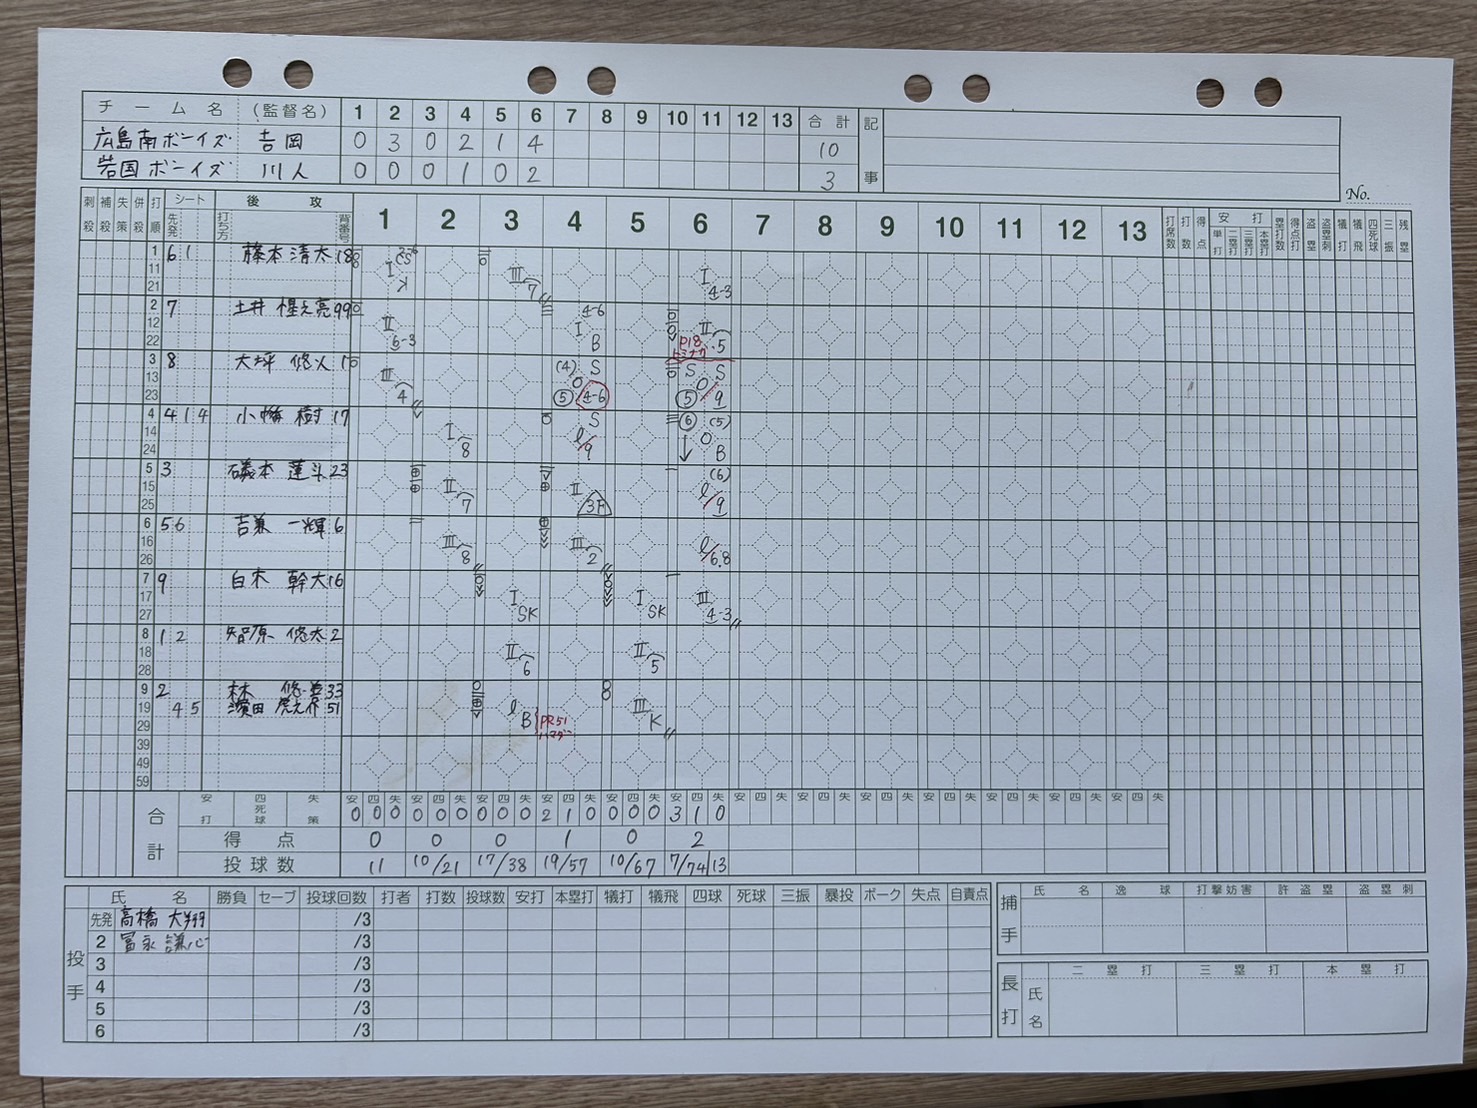 チーム名 (監督名) 1 2 3 4 5 6 7 8 9 10 11 12 13 合計 記事
広島南ボーイズ 吉岡 0 3 0 2 1 4 10
岩国ボーイズ 川人 0 0 0 1 0 2 3
No.
刺殺 補殺 失策 併殺 打順 シート 先発 後攻 打ち方 背番号 1 2 3 4 5 6 7 8 9 10 11 12 13 打席数 打数 得点 安打 単打 二塁打 三塁打 本塁打 塁打数 得点打 盗塁 盗塁刺 犠打 犠飛 四死球 三振 残塁
1 11 21 6 1 藤本 清太 18 I K III 7 I 4-3
2 12 22 7 土井 99 II 6-3 4-6 I B II 5 P18
3 13 23 8 大坪 悠人 10 III 4 (4) S 5 4-6 S S 5 9
4 14 24 4 1 4 小幡 樹 17 I 8 S 9 6 (5) B
5 15 25 3 磯本 蓮斗 23 II 7 II 3F (6) 9
6 16 26 5 6 吉兼 一輝 6 III 8 III 2 6.8
7 17 27 9 白木 幹大 16 I SK I SK III 4-3
8 18 28 1 2 智原 悠太 2 II 6 II 5
9 19 29 2 林 33 B PR51 III K
4 5 濱田 51
39 49 59
合計 安打 四死球 失策 安 四 失 0 0 0 0 0 0 0 0 0 2 1 0 0 0 0 3 1 0
得点 0 0 0 1 0 2
投球数 11 10/21 17/38 19/57 10/67 7/74 13
投手 氏名 勝負 セーブ 投球回数 打者 打数 投球数 安打 本塁打 犠打 犠飛 四球 死球 三振 暴投 ボーク 失点 自責点
先発 高橋 大翔 /3
2 冨永 謙心 /3
3 /3
4 /3
5 /3
6 /3
捕手 氏名 逸球 打撃妨害 許盗塁 盗塁刺
長打 氏名 二塁打 三塁打 本塁打